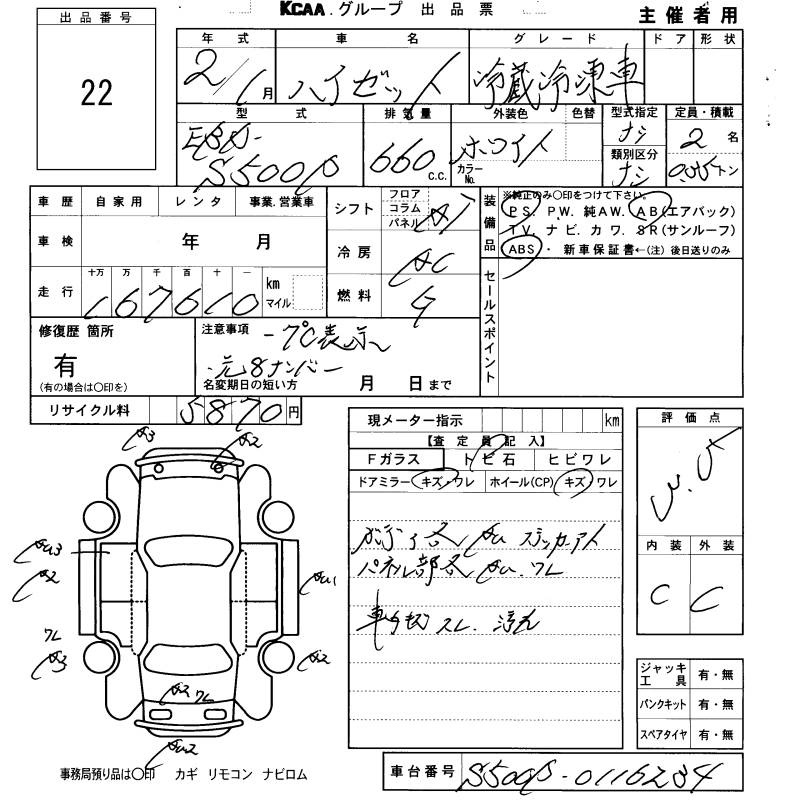 KCAA.グループ 出品票
主催者用
出品番号
22
年式 車名 グレード ドア 形状
2/1月 ハイゼット 冷蔵冷凍車
型式 排気量 外装色 色替 型式指定 定員・積載
EBD-
S500P 660 c.c. ホワイト ナシ 2名
カラーNo. 類別区分 ナシ 0.35トン
車歴 自家用 レンタ 事業.営業車
車検 年 月
十万 万 千 百 十 一
走行 167610 km マイル
シフト フロア コラム パネル AT
冷房 AC
燃料 G
装備品
※純正のみ○印をつけて下さい。
PS. P.W. 純AW. AB(エアバック)
T.V. ナビ. カワ. SR(サンルーフ)
ABS・ 新車保証書←(注) 後日送りのみ
セールスポイント
修復歴 箇所
有
(有の場合は○印を)
注意事項
-7℃表示
元8ナンバー
名変期日の短い方 月 日まで
リサイクル料 5870円
現メーター指示 km
【査定員記入】
Fガラス トビ石 ヒビワレ
ドアミラー キズ・ワレ ホイール(CP) キズ・ワレ
ボディ各 AU ステッカーアト
パネル部各 AU.ワレ
車内 スレ. 汚れ
評価点
内装 外装
C C
ジャッキ工具 有・無
パンクキット 有・無
スペアタイヤ 有・無
A3
A2
AU3
A2
AU1
ワレ
A3
A2
A2 ワレ
AU2
事務局預り品は○印 カギ リモコン ナビロム
車台番号 S500P-0116234